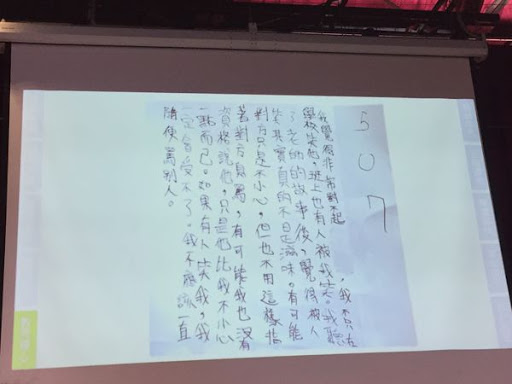 507
我覺得非常對不起 。我不只在
學校笑他,班上也有人被我笑。我聽
了老師的故事後,覺得被人
笑其實真的不是滋味。有可能
對方只是不小心,但也不用這樣指
著對方臭罵,有可能我也沒有
資格說他,只是他比我不小心
一點而已。如果有人笑我,我
一定會受不了。我不應該一直
隨便罵別人。